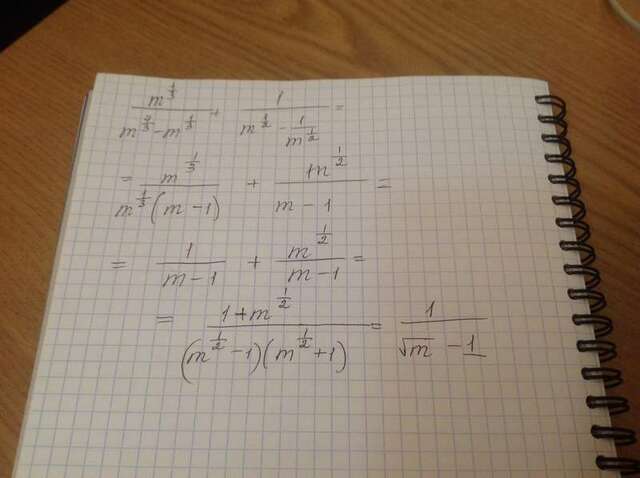 m^(1/3)/(m^(4/3) - m^(1/3)) + 1/(m^(1/2) - 1/m^(1/2)) =
= m^(1/3)/(m^(1/3)(m - 1)) + m^(1/2)/(m - 1) =
= 1/(m - 1) + m^(1/2)/(m - 1) =
= (1 + m^(1/2))/((m^(1/2) - 1)(m^(1/2) + 1)) = 1/(√m - 1)